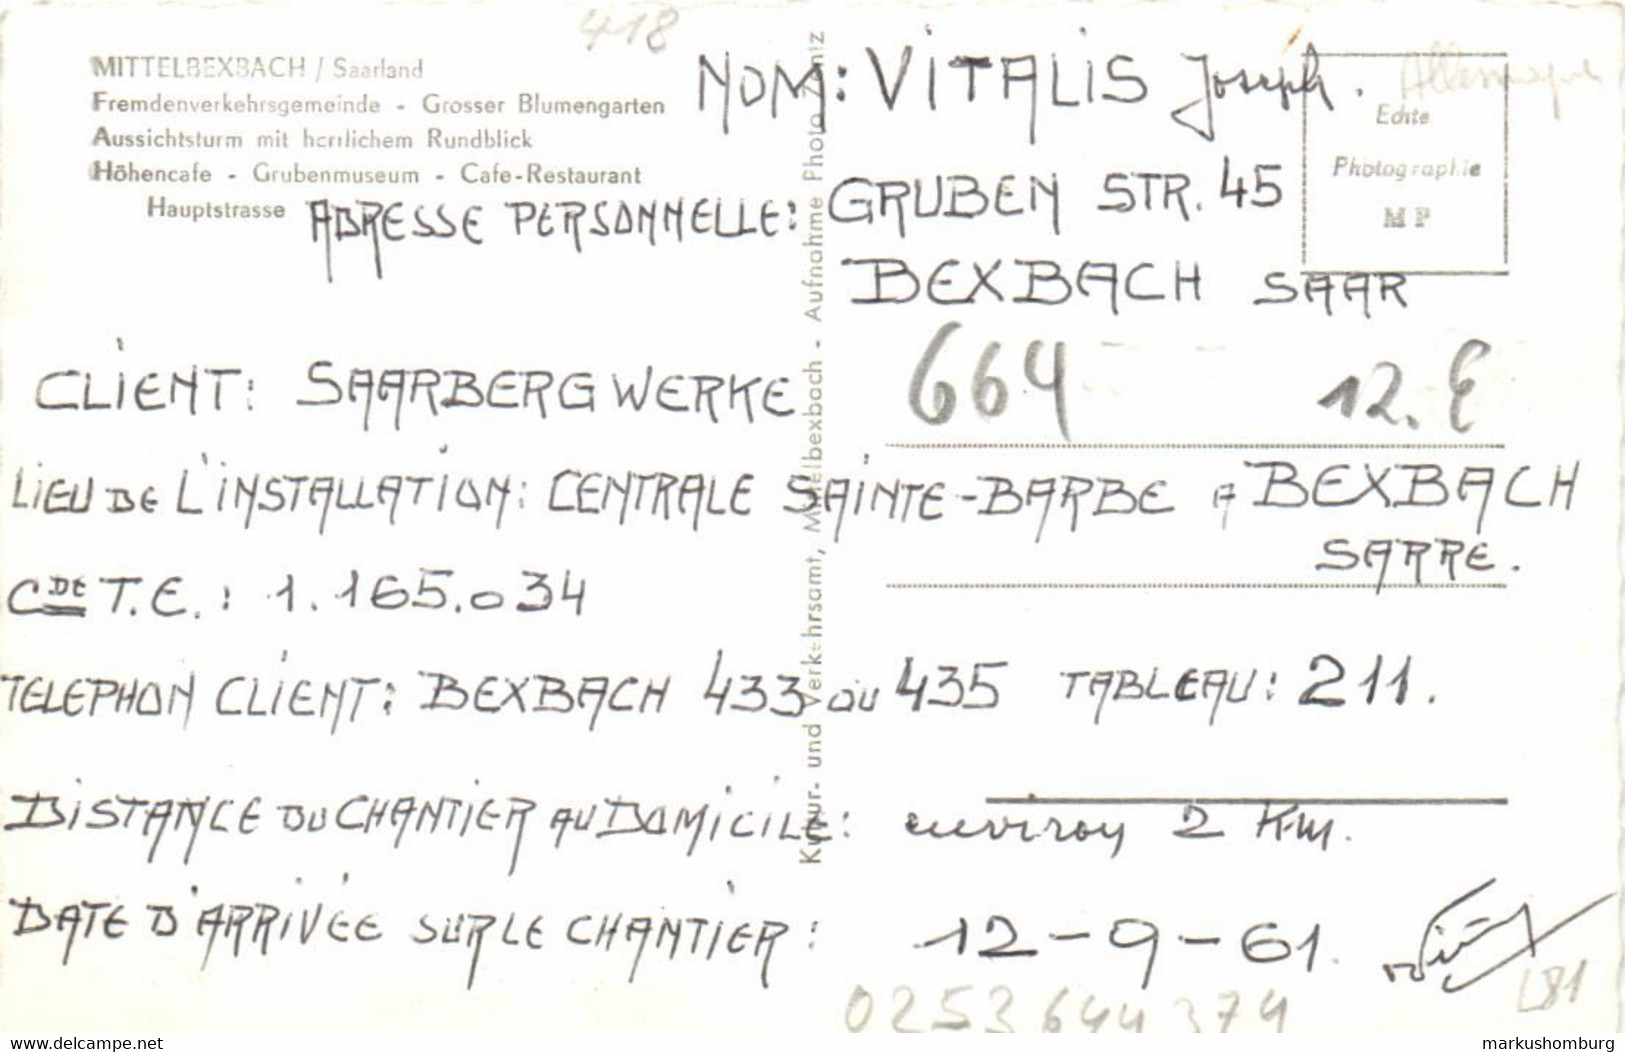 418
MITTELBEXBACH / Saarland
Fremdenverkehrsgemeinde - Grosser Blumengarten
Aussichtsturm mit herrlichem Rundblick
Höhencafe - Grubenmuseum - Cafe-Restaurant
Hauptstrasse
NOM: VITALIS Joseph.
Allemagne
Echte
Photographie
MP
ADRESSE PERSONNELLE: GRUBEN STR. 45
BEXBACH SAAR
CLIENT: SAARBERGWERKE
664 12.E
LIEU DE L'INSTALLATION: CENTRALE SAINTE-BARBE A BEXBACH
SARRE.
CDE T.E.: 1.165.034
TELEPHON CLIENT: BEXBACH 433 OU 435 TABLEAU: 211.
DISTANCE DU CHANTIER AU DOMICILE: environ 2 Km.
DATE D'ARRIVÉE SUR LE CHANTIER: 12-9-61.
L81
0253 644 374
Kultur- und Verkehrsamt, Mittelbexbach - Aufnahme Photo
www.delcampe.net
markushomburg